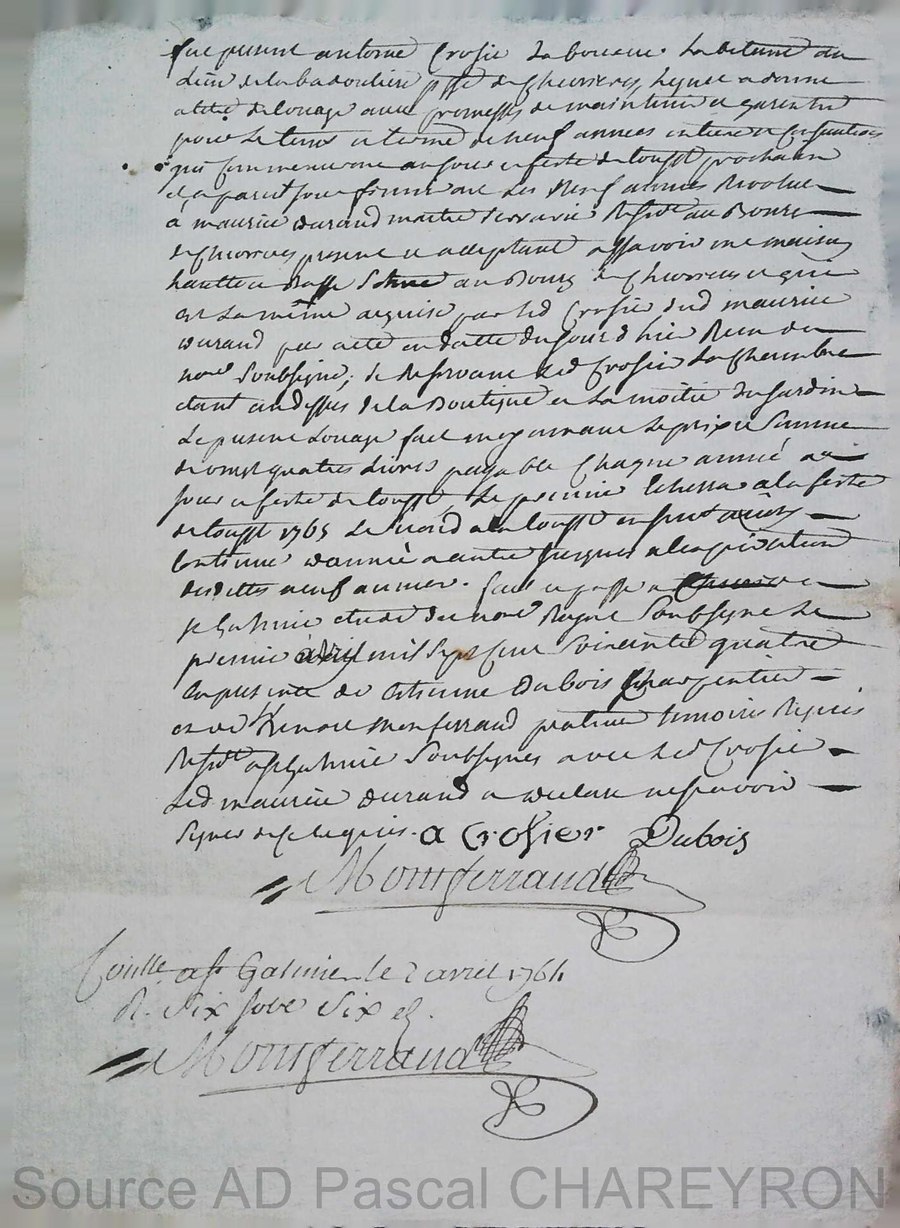 fut present antoine Crosier laboureur habitant au
lieu de la badouliere psse de Chevrieres, lequel a donné
a titre de louage avec promesses de maintenir et garentir
pour le tems et terme de neuf années entiere et consecutives
qui commenceront au jour et feste de tousst prochaine
et a pareil jour finiront les neuf années Revolues
a maurice durand maitre serrurier Residt au Bourg
de Chevrieres present et acceptant assavoir une maison
hautte et Basse scitué au Bourg de Chevrieres et qui
est la même acquise par led Crosier dud maurice
durand par acte en datte du jourd'hier Recu du
nore soubsigné, se Reservant led Crosier la Chambre
etant au dessus de la Boutique et la moitié du jardin
le present louage fait moyennant le prix et somme
de vingt quatre livres payable chaque année au
jour et feste de toussts le premier echera a la feste
de toussts 1765 le second a la toussts en suivant et ainsy
continuer d'année a autre jusques a l'expiration
desdittes neuf années. fait et passé a
st Galmier etude du nore Royal soubsigné le
premier avril mil sept cent soixante quatre
en presence de Etienne Dubois Charpentier
et de Monferrand praticien temoins Requis
Residt a st Galmier soubsignés avec led Crosier
led maurice durand a declaré ne scavoir
signer de ce requis. a Crosier Dubois
Montferrand
Contlle a st Galmier le 2 avril 1764
R. Six sous Six d.
Montferrand
Source AD Pascal CHAREYRON